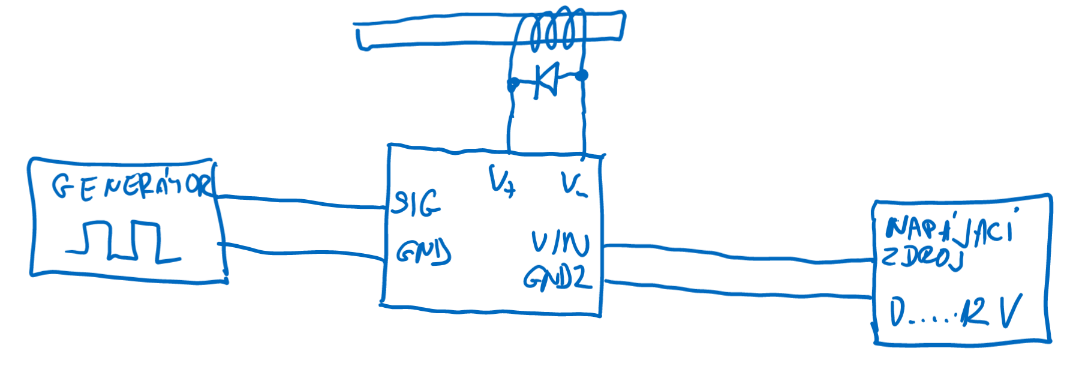 GENERÁTOR
SIG
GND
V+ V-
VIN
GND2
NAPÁJACÍ
ZDROJ
0.....12 V